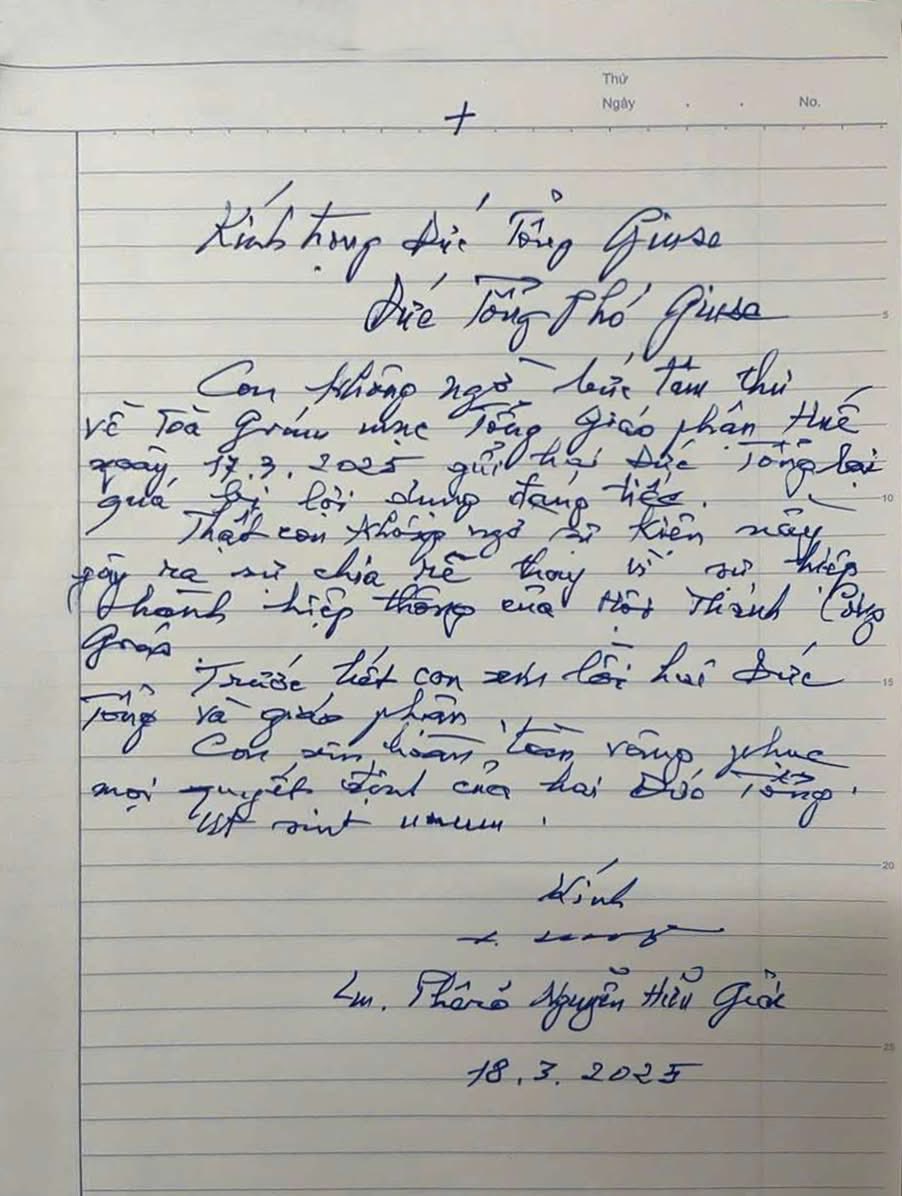 Thứ
Ngày . . No.
+
Kính trọng Đức Tổng Giuse
Đức Tổng Phó Giuse
5
Con không ngờ bức tâm thư
về Toà Giám mục Tổng Giáo phận Huế
ngày 17.3.2025 gửi hai Đức Tổng lại
quá bị lợi dụng đáng tiếc.
10
Thật con không ngờ sự kiện này
gây ra sự chia rẽ thay vì sự hiệp
thành hiệp thông của Hội Thánh Công
Giáo.
Trước hết con xin lỗi hai Đức
15
Tổng và giáo phận.
Con xin hoàn toàn vâng phục
mọi quyết định của hai Đức Tổng.
Ut sint unum.
20
Kính
Lm. Phêrô Nguyễn Hữu Giải
25
18.3.2025